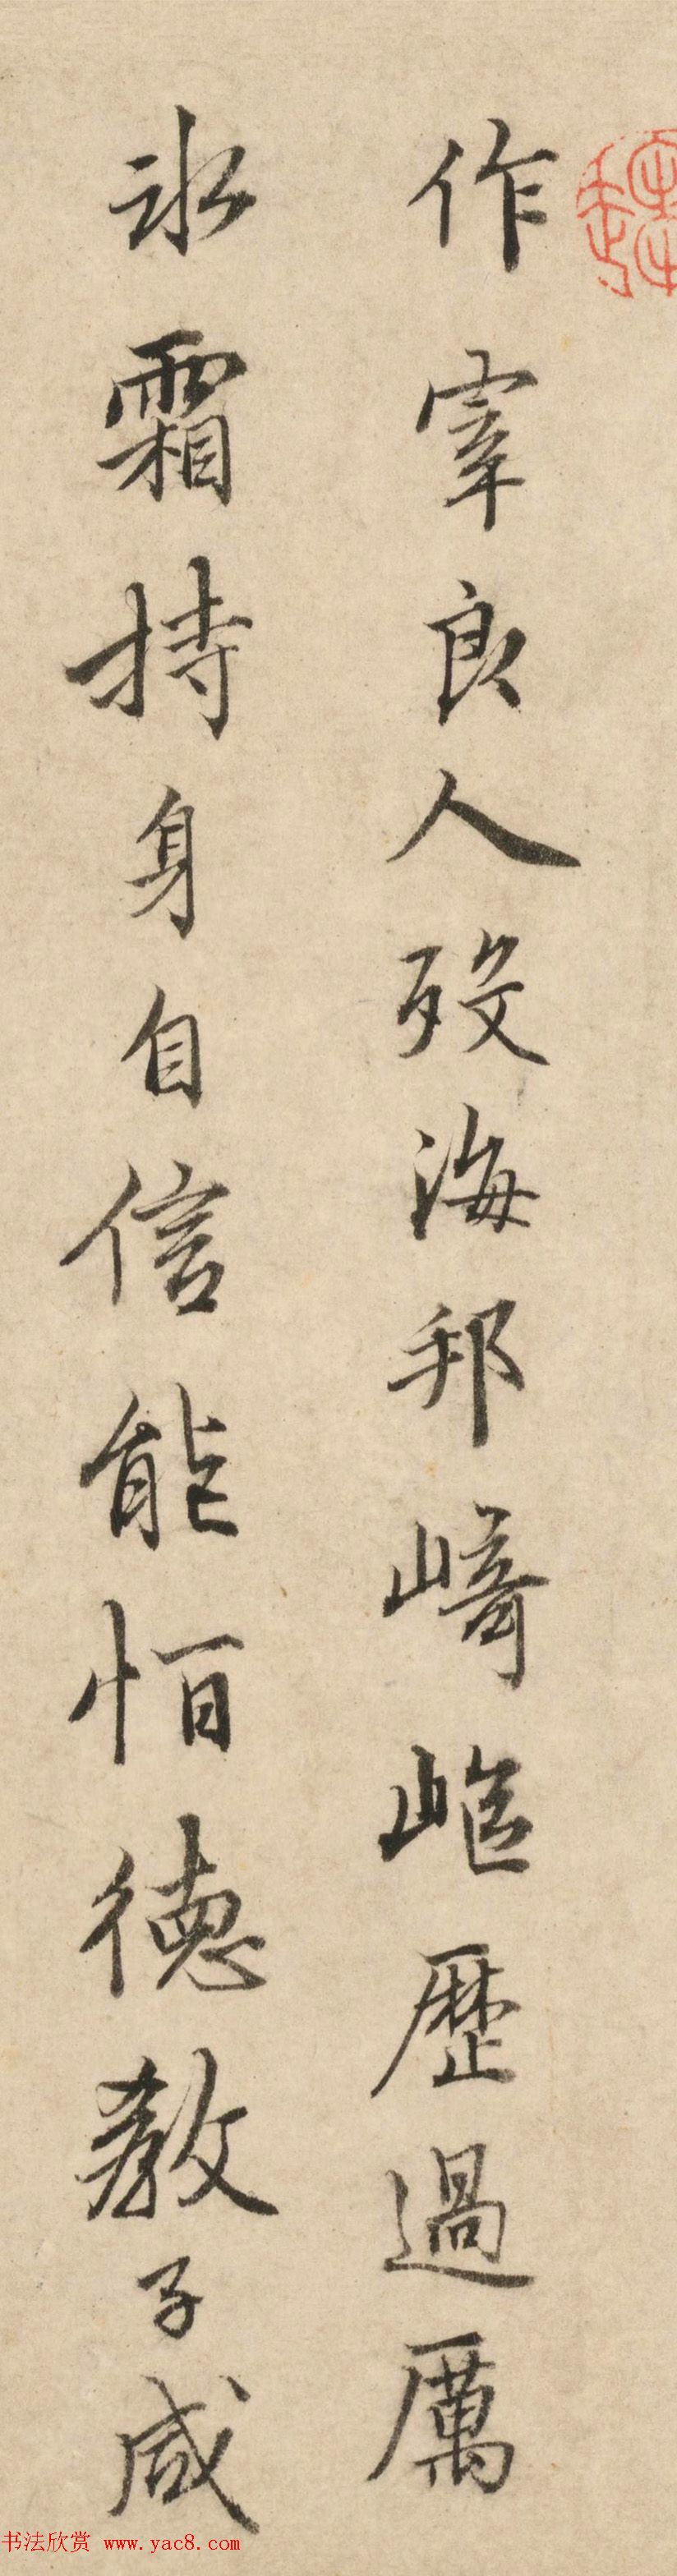 作宰良人歿海邦崎嶇歷過厲
冰霜持身自信能恒德教子咸
书法欣赏 www.yac8.com